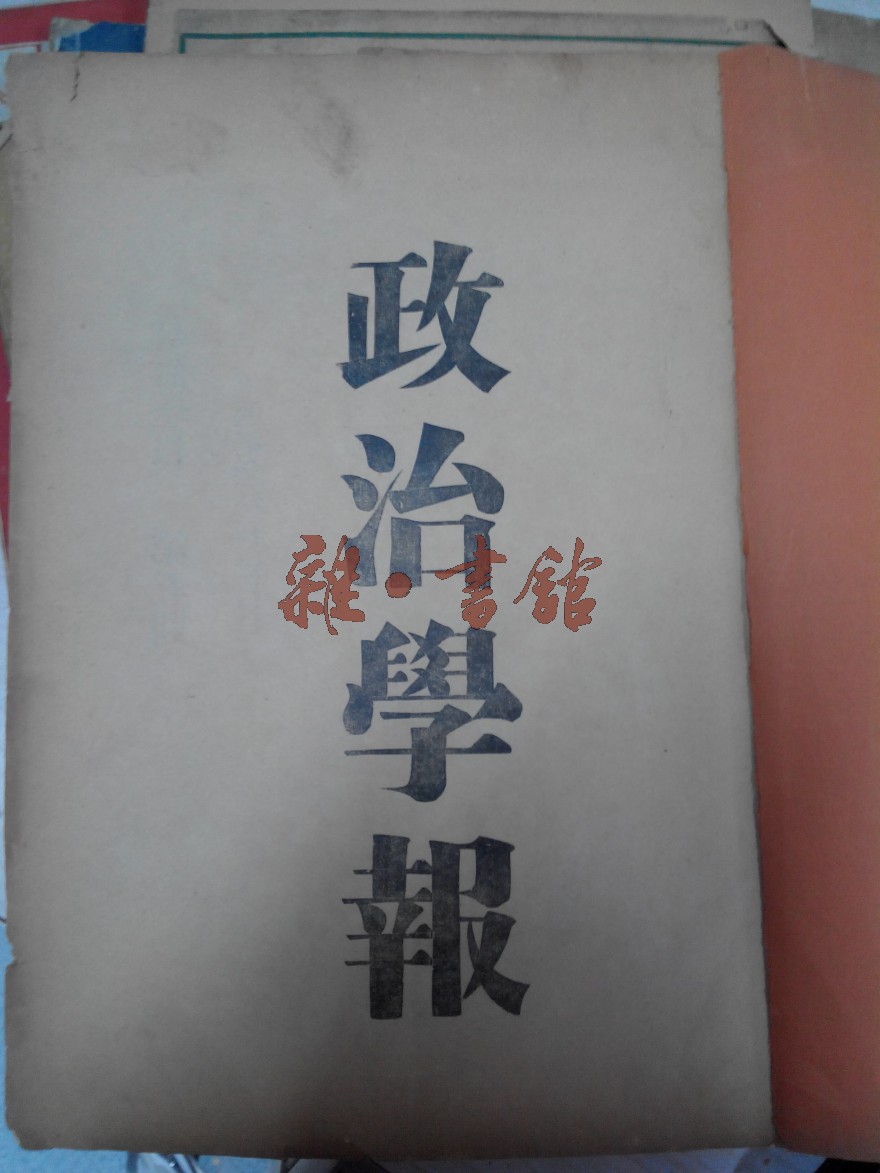 政治學報
雜·書館